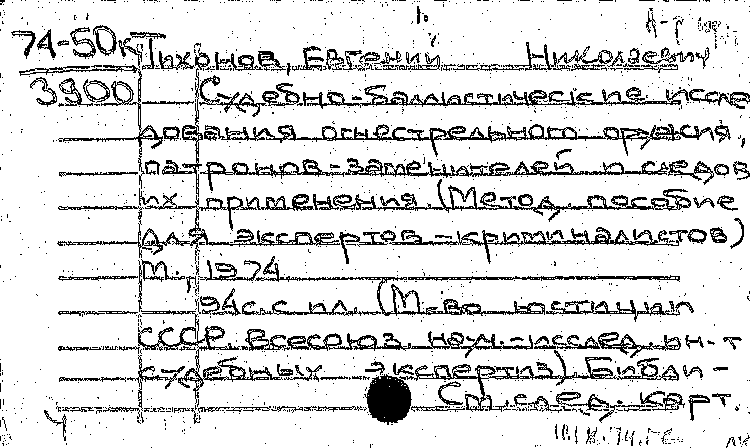 74-50кт
3900
Тихонов, Евгений Николаевич
Судебно-баллистические иссле
дования огнестрельного оружия,
патронов-заменителей и следов
их применения. (Метод. пособие
для экспертов-криминалистов)
М., 1974
94с. с ил. (М-во юстиции
СССР. Всесоюз. науч.-исслед. ин-т
судебных экспертиз). Библи-
См. след. карт.